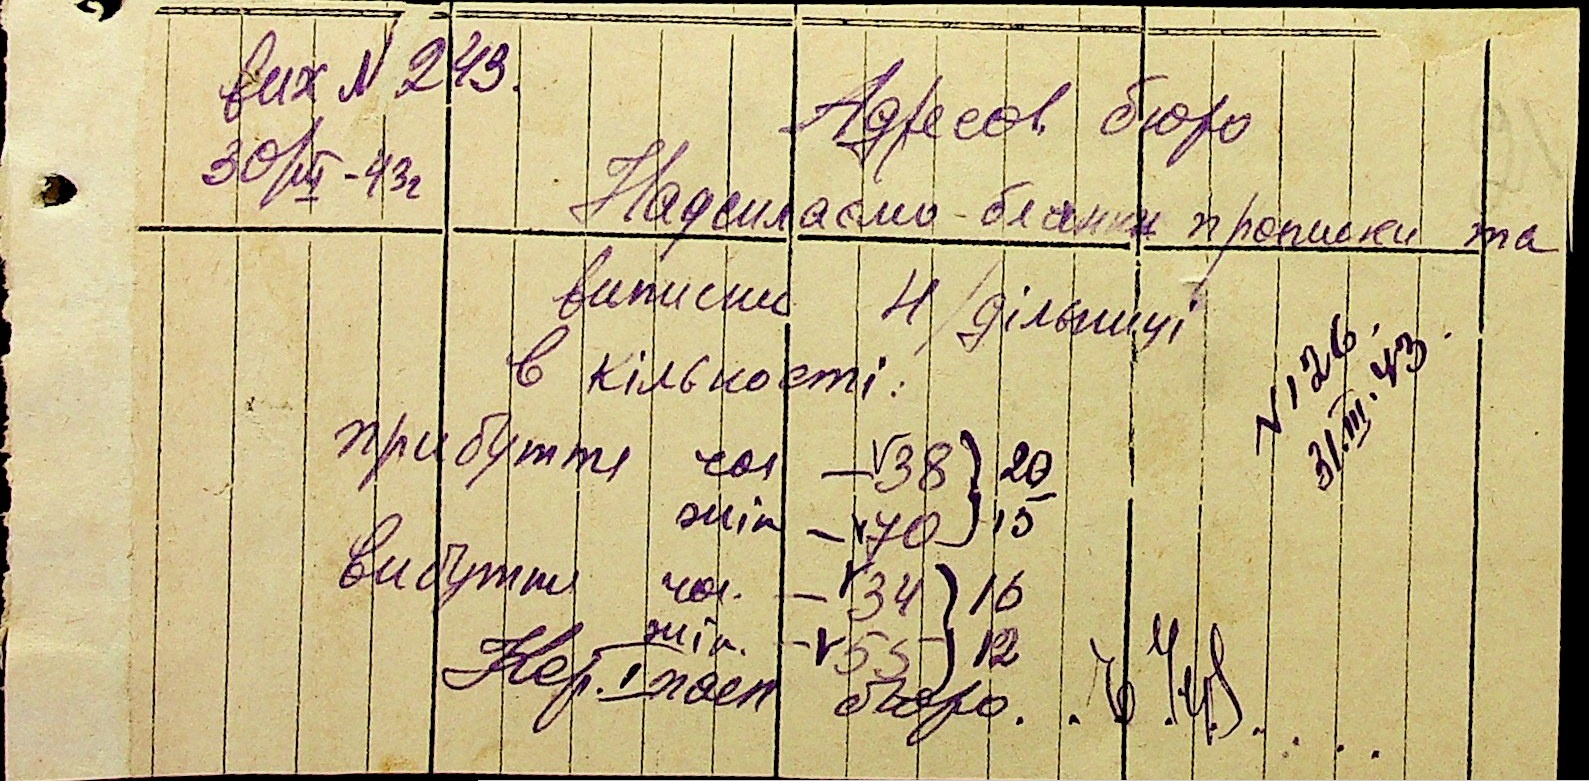 вих N 243.
30/III-43г
Адресов бюро
Надсилаємо бланки прописки та
виписки 4/дільниці
в кількості:
N 126.
31.III.43.
прибуття чол - √38 } 20
жін - √70 } 15
вибуття чол. - √34 } 16
жін. - √55 } 12
Кер. пасп бюро.